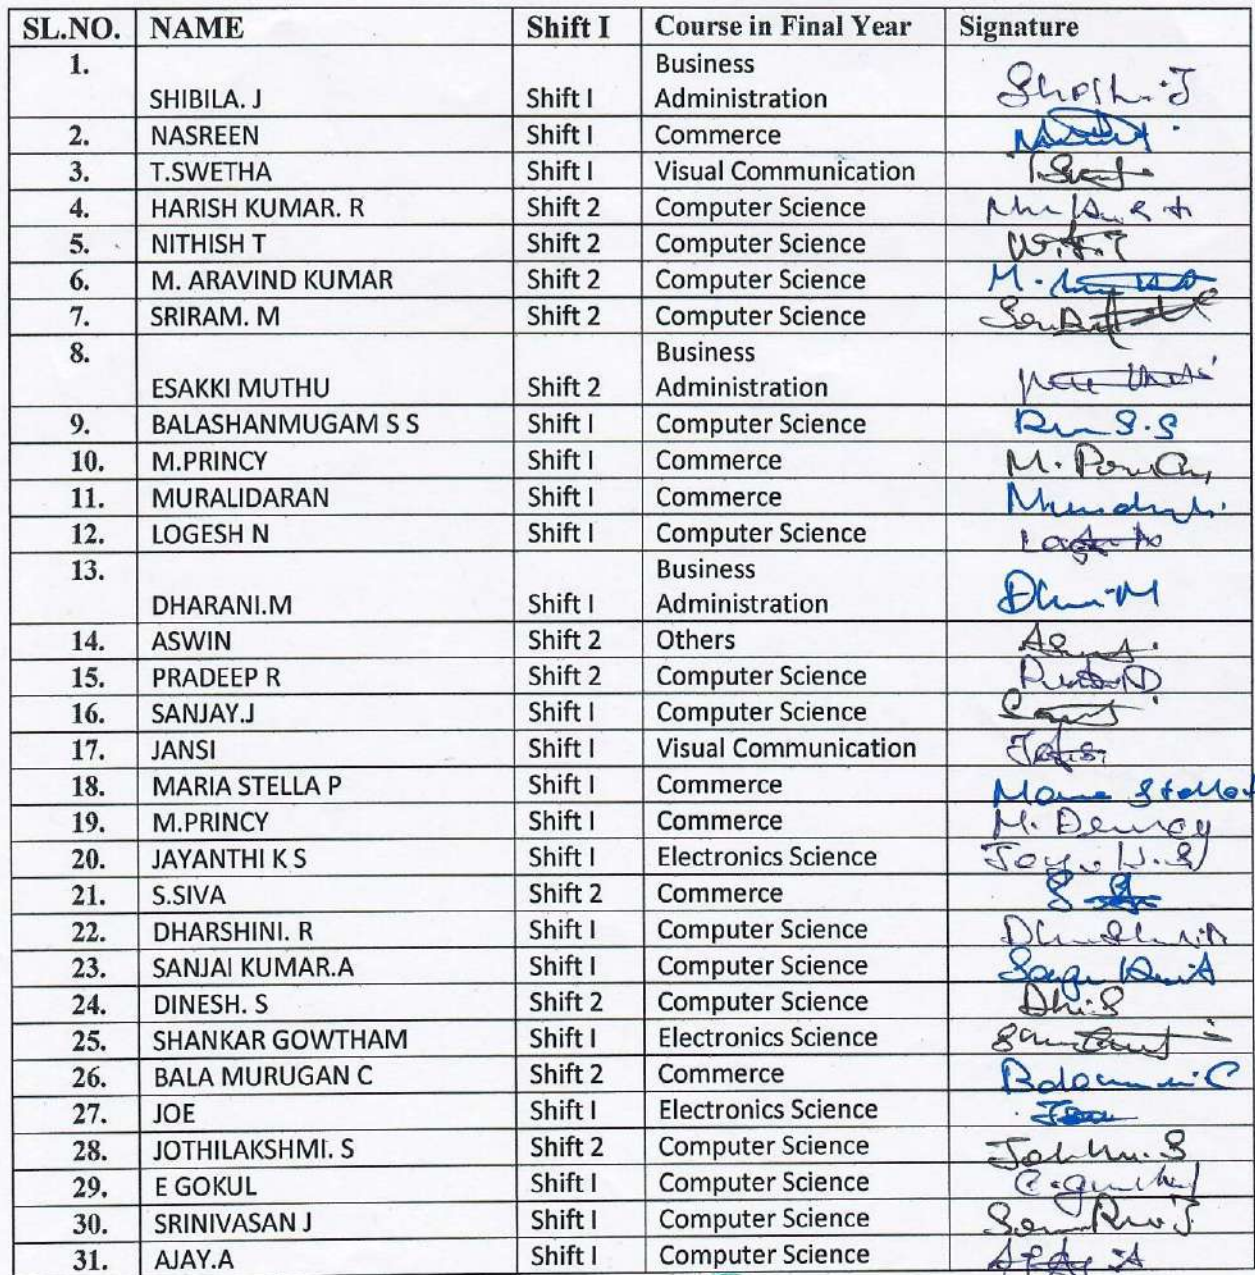 SL.NO. NAME Shift I Course in Final Year Signature
1. SHIBILA. J Shift I Business Administration
2. NASREEN Shift I Commerce
3. T.SWETHA Shift I Visual Communication
4. HARISH KUMAR. R Shift 2 Computer Science
5. NITHISH T Shift 2 Computer Science
6. M. ARAVIND KUMAR Shift 2 Computer Science
7. SRIRAM. M Shift 2 Computer Science
8. ESAKKI MUTHU Shift 2 Business Administration
9. BALASHANMUGAM S S Shift I Computer Science
10. M.PRINCY Shift I Commerce
11. MURALIDARAN Shift I Commerce
12. LOGESH N Shift I Computer Science
13. DHARANI.M Shift I Business Administration
14. ASWIN Shift 2 Others
15. PRADEEP R Shift 2 Computer Science
16. SANJAY.J Shift I Computer Science
17. JANSI Shift I Visual Communication
18. MARIA STELLA P Shift I Commerce
19. M.PRINCY Shift I Commerce
20. JAYANTHI K S Shift I Electronics Science
21. S.SIVA Shift 2 Commerce
22. DHARSHINI. R Shift I Computer Science
23. SANJAI KUMAR.A Shift I Computer Science
24. DINESH. S Shift 2 Computer Science
25. SHANKAR GOWTHAM Shift I Electronics Science
26. BALA MURUGAN C Shift 2 Commerce
27. JOE Shift I Electronics Science
28. JOTHILAKSHMI. S Shift 2 Computer Science
29. E GOKUL Shift I Computer Science
30. SRINIVASAN J Shift I Computer Science
31. AJAY.A Shift I Computer Science